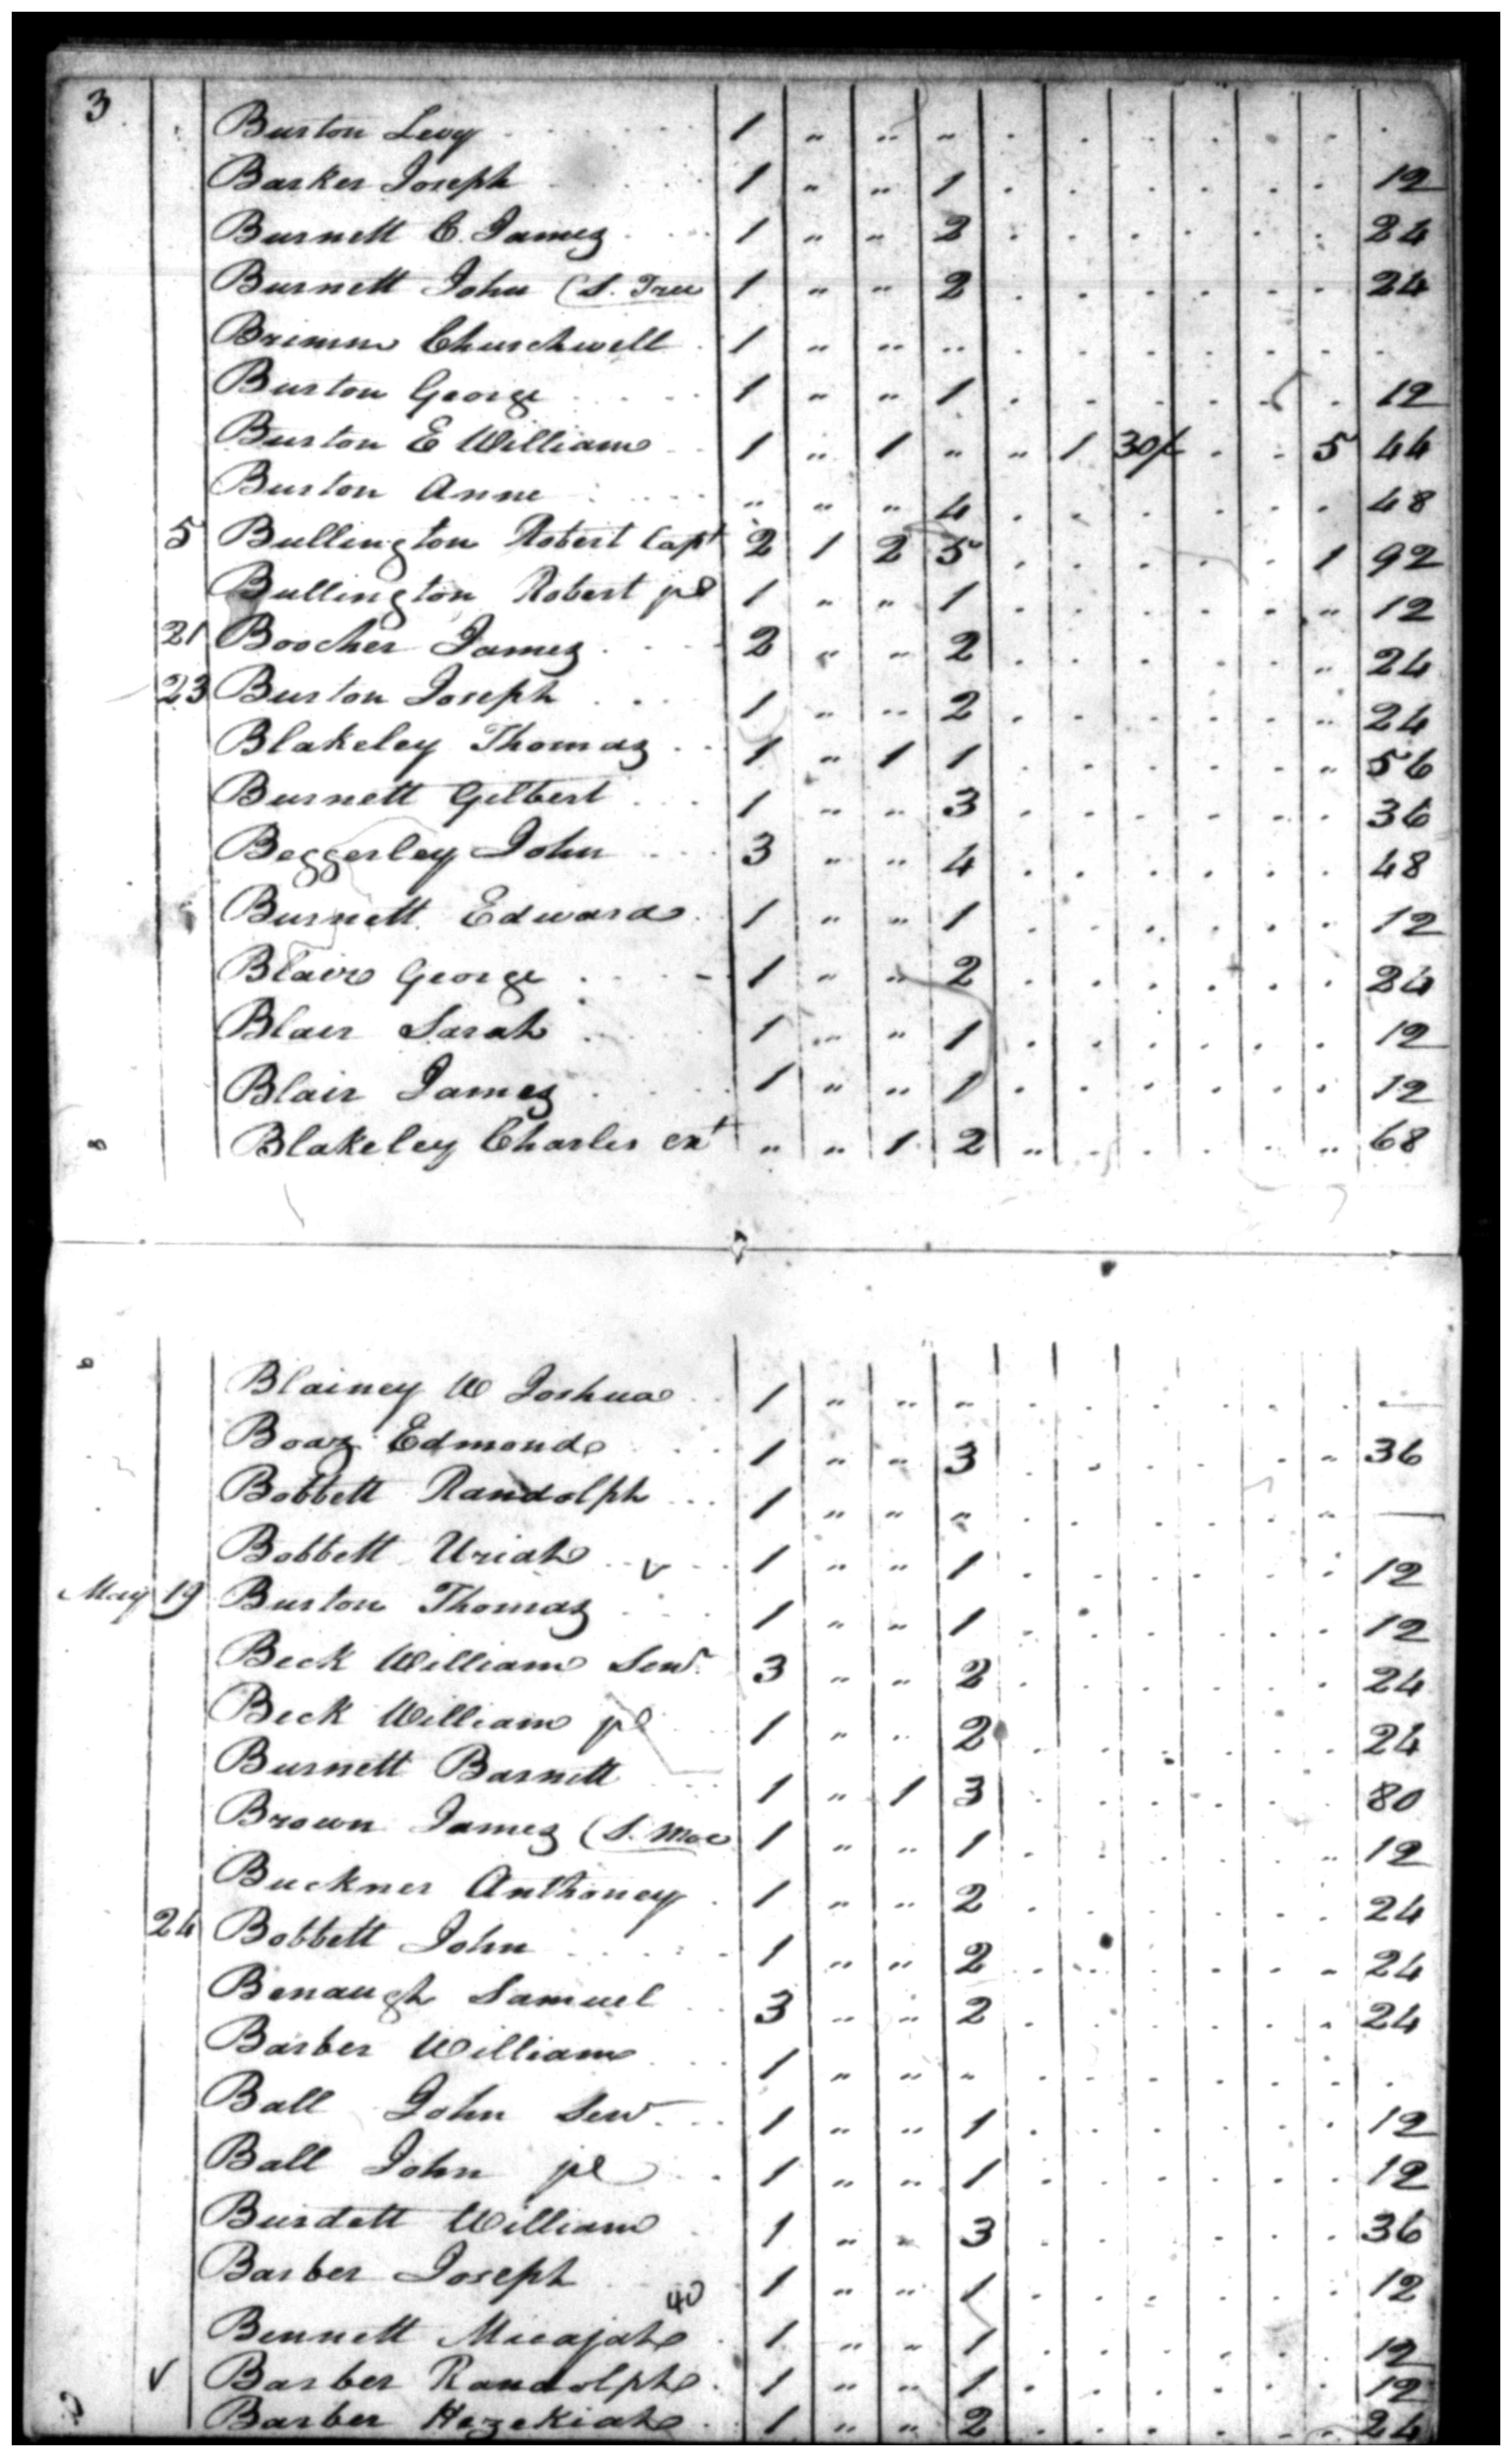 3
Burton Levy 1 " " " . . . . . . .
Barker Joseph 1 " " 1 . . . . . . 12
Burnett C. James 1 " " 2 . . . . . . 24
Burnett John (S. Tree 1 " " 2 . . . . . . 24
Brimm Churchwell 1 " " " . . . . . . .
Burton George 1 " " 1 . . . . . . 12
Burton E William 1 " 1 " " 1 30/ . . 5 44
Burton Anne " " " 4 . . . . . . 48
5 Bullington Robert Capt 2 1 2 5 . . . . . 1 92
Bullington Robert jr 1 " " 1 . . . . . " 12
21 Boocher James 2 " " 2 . . . . . " 24
23 Burton Joseph 1 " " 2 . . . . . " 24
Blakeley Thomas 1 " 1 1 . . . . . " 56
Burnett Gilbert 1 " " 3 . . . . . . 36
Beggerley John 3 " " 4 . . . . . . 48
Burnett Edward 1 " " 1 . . . . . . 12
Blair George 1 " " 2 . . . . . . 24
Blair Sarah 1 " " 1 . . . . . . 12
Blair James 1 " " 1 . . . . . . 12
Blakeley Charles ext " " 1 2 " . . . . " 68
Blainey W Joshua 1 " " " . . . . . . —
Boaz Edmond 1 " " 3 . . . . . " 36
Bobbett Randolph 1 " " " . . . . . " —
Bobbett Uriah v 1 " " 1 . . . . . . 12
May 19 Burton Thomas 1 " " 1 . . . . . . 12
Beck William Senr. 3 " " 2 . . . . . . 24
Beck William jr 1 " " 2 . . . . . . 24
Burnett Barnett 1 " 1 3 . . . . . . 80
Brown James (S. Moe 1 " " 1 . . . . . " 12
Buckner Anthoney 1 " " 2 . . . . . . 24
24 Bobbett John 1 " " 2 . . . . . . 24
Benaugh Samuel 3 " " 2 . . . . . . 24
Barber William 1 " " " . . . . . . .
Ball John Senr 1 " " 1 . . . . . . 12
Ball John jr 1 " " 1 . . . . . . 12
Burdett William 1 " " 3 . . . . . . 36
Barber Joseph 1 " " 1 . . . . . . 12
40
Bennett Micajah 1 " " 1 . . . . . . 12
v Barber Randolph 1 " " 1 . . . . . . 12
Barber Hezekiah 1 " " 2 . . . . . . 24